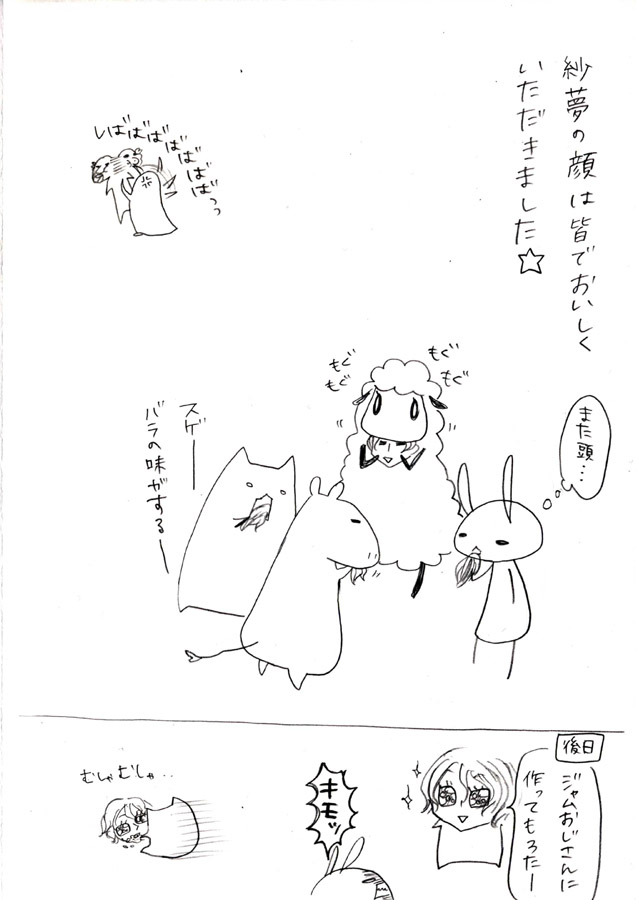 紗夢の顔は皆でおいしく
いただきました☆
いばばばばばばばっっ
もぐ
もぐ
もぐ
もぐ
また頭…
スゲー
バラの味がするー
後日
ジャムおじさんに
作ってもろたー
キモッ
むしゃむしゃ..